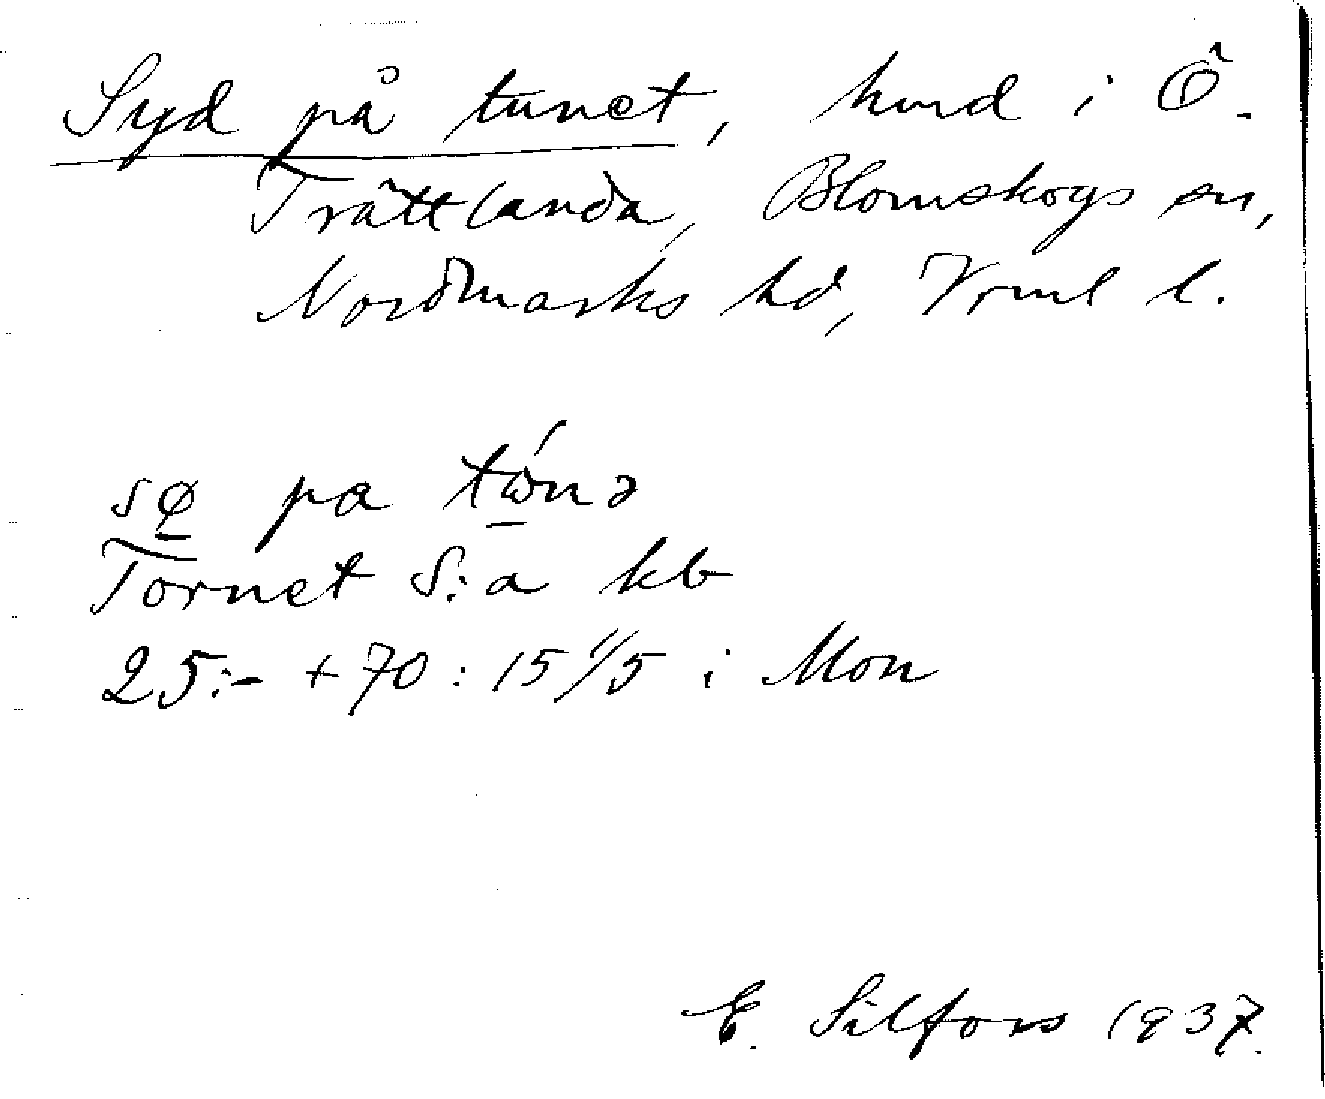 Syd på tunet, hmd i Ö.
Trättlanda, Blomskogs sn,
Nordmarks hd, Vrml l.
sø pa tɷ́nə
Tornet S:a kb
25:- + 70: 15 1/5 i Mon
E. Silfors 1937.